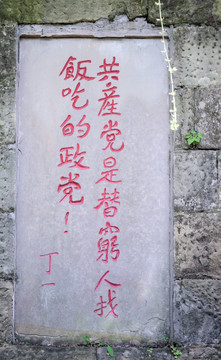 共產党是替窮人找
飯吃的政党！
丁一